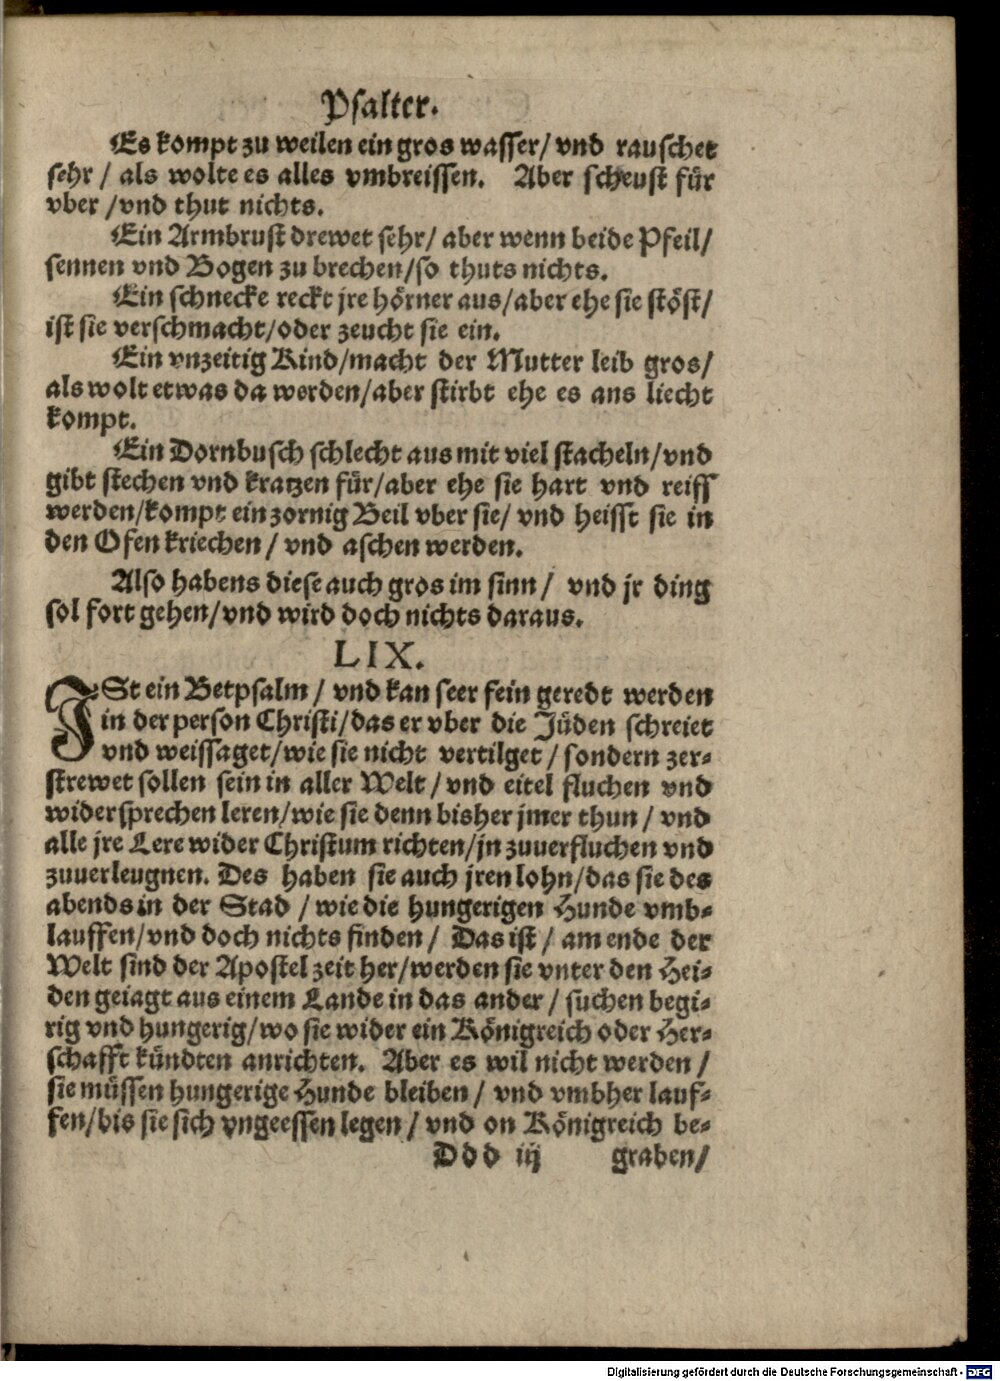 Psalter.
Es kompt zu weilen ein gros wasser/ vnd rauschet
sehr / als wolte es alles vmbreissen. Aber scheust für
vber /vnd thut nichts.
Ein Armbrust drewet sehr/ aber wenn beide Pfeil/
sennen vnd Bogen zu brechen/so thuts nichts.
Ein schnecke reckt jre hörner aus/aber ehe sie stöst/
ist sie verschmacht/oder zeucht sie ein.
Ein vnzeitig Kind/macht der Mutter leib gros/
als wolt etwas da werden/aber stirbt ehe es ans liecht
kompt.
Ein Dornbusch schlecht aus mit viel stacheln/vnd
gibt stechen vnd kratzen für/aber ehe sie hart vnd reiff
werden/kompt ein zornig Beil vber sie/ vnd heisst sie in
den Ofen kriechen / vnd aschen werden.
Also habens diese auch gros im sinn / vnd jr ding
sol fort gehen/vnd wird doch nichts daraus.
LIX.
JSt ein Betpsalm / vnd kan seer fein geredt werden
in der person Christi/das er vber die Jüden schreiet
vnd weissaget/wie sie nicht vertilget / sondern zer-
strewet sollen sein in aller Welt / vnd eitel fluchen vnd
widersprechen leren/wie sie denn bisher jmer thun / vnd
alle jre Lere wider Christum richten/jn zuuerfluchen vnd
zuuerleugnen. Des haben sie auch jren lohn/das sie des
abends in der Stad / wie die hungerigen Hunde vmb-
lauffen/vnd doch nichts finden / Das ist / am ende der
Welt sind der Apostel zeit her/werden sie vnter den Hei-
den geiagt aus einem Lande in das ander / suchen begi-
rig vnd hungerig/wo sie wider ein Königreich oder Her-
schafft kündten anrichten. Aber es wil nicht werden /
sie müssen hungerige Hunde bleiben / vnd vmbher lauf-
fen/bis sie sich vngeessen legen / vnd on Königreich be-
Ddd iij graben/
Digitalisierung gefördert durch die Deutsche Forschungsgemeinschaft - DFG